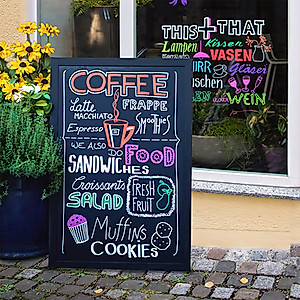 COFFEE
Latte MACCHIATO
FRAPPE
Espresso
Smoothies
WE ALSO DO
FOOD
SANDWICHES
Croissants
SALAD
FRESH FRUIT
Muffins
COOKIES
THIS + THAT
Lampen
Kissen
VASEN
Gläser
WEIN